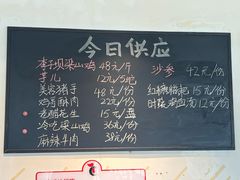 今日供应
李子坝梁山鸡 48元/斤
芋儿 12元/份
美容猪手 48元/份
鸡杂酥肉 22元/份
老醋花生 15元/盘
冷吃梁山鸡 36元/份
麻辣牛肉 38元/份
沙参 42元/份
红糖糍粑 15元/份
时蔬 12元/份